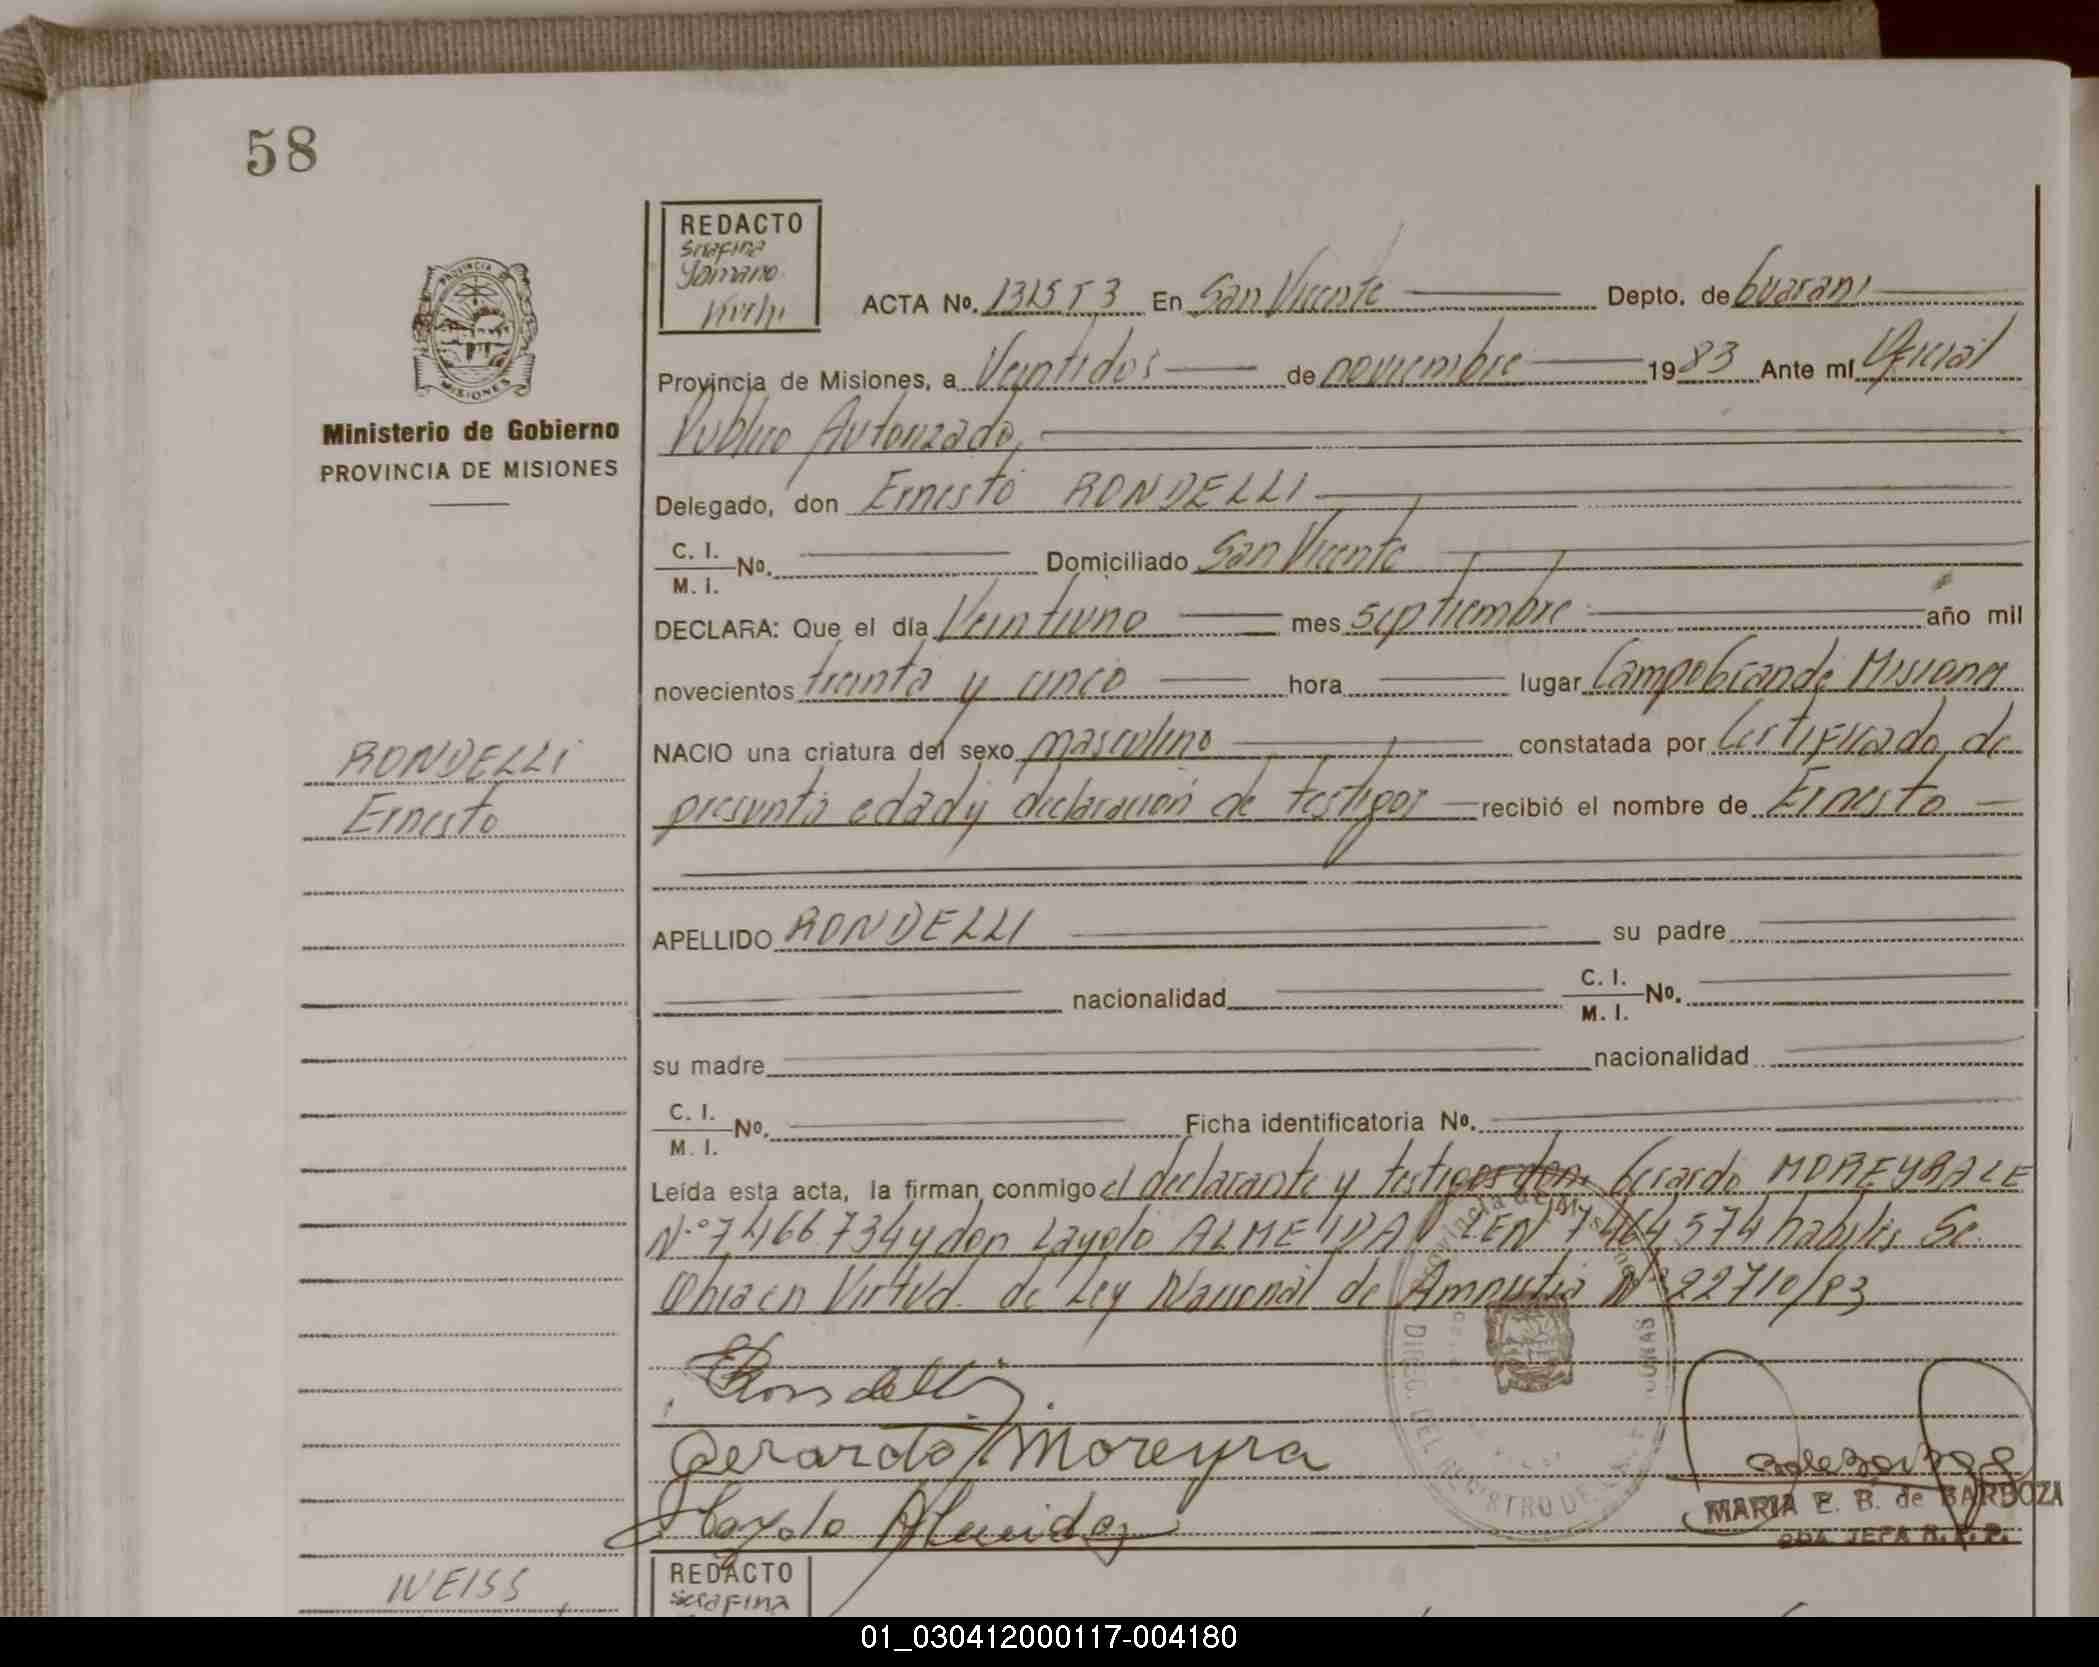 58
REDACTO
Serafina
Romano
ACTA Nº. 131553 En San Vicente Depto. de Guarani
Provincia de Misiones, a Veintidos de noviembre 1983 Ante mí Oficial
Publico Autorizado,
PROVINCIA
MISIONES
Ministerio de Gobierno
PROVINCIA DE MISIONES
Delegado, don Ernesto RONDELLI
C. I.
M. I. Nº. Domiciliado San Vicente
DECLARA: Que el día Veintiuno mes septiembre año mil
novecientos treinta y cinco hora lugar Campo Grande Misiones
RONDELLI
Ernesto
NACIO una criatura del sexo masculino constatada por Certificado de
presunta edad y declaración de testigos recibió el nombre de Ernesto
APELLIDO RONDELLI su padre
nacionalidad C. I.
M. I. Nº.
su madre nacionalidad
C. I.
M. I. Nº. Ficha identificatoria Nº.
Leída esta acta, la firman conmigo el declarante y testigos don Gerardo MOREYRA LE
Nº 7466734 y don Layolo ALMEIDA LE Nº 7464574 habiles Se
Obra en Virtud de Ley Nacional de Amnistia Nº 22710/83
ERondelli
Gerardo Moreyra
Almeida
MARIA E. B. de BARBOZA
JEFA R. P.
WEISS
REDACTO
Serafina
01_030412000117-004180